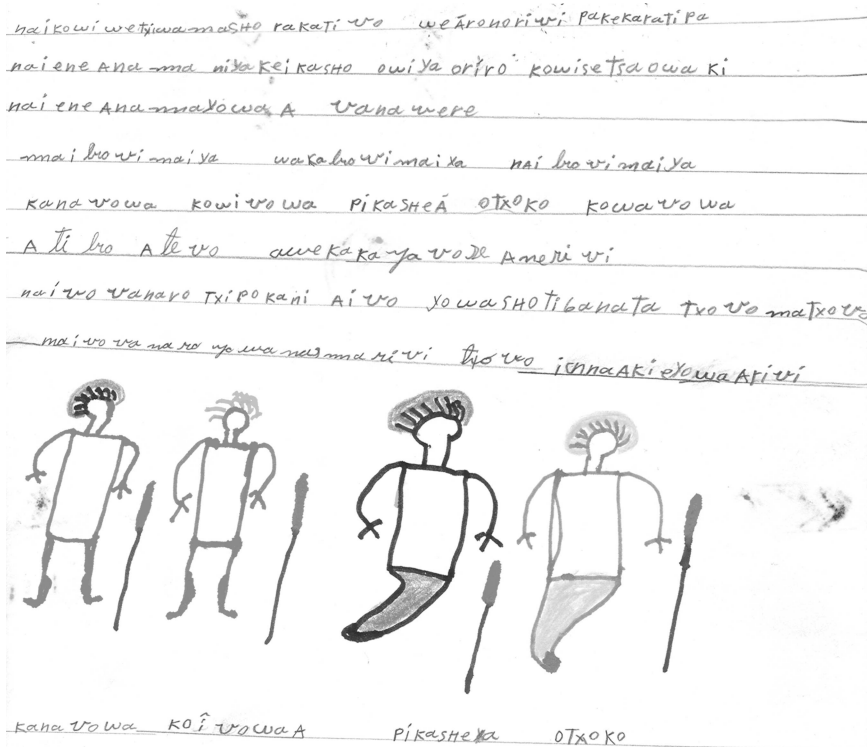 naikowi wetxiwamaSHO rakati vo weÃronorivi pakekaratipa
naiene Ana ma niyakeikaSHO owiya oriro kowisetsaowa ki
naiene Ana mayowa A vana were
mai brovimaiya wakabrovimaiya nAí brovimaiya
kana vowa kowivowa PikASHEÁ OTXOKO kowavowa
A ti bo A te vo awekakaya vo Aneri vi
naivo vanavo TXiPOKani Aivo yowaSHOtibanata TXOVO
maivovanaro yowanasmarivi txovo
kana vowa KOÎ vowa A PikASHEYA OTXOKO